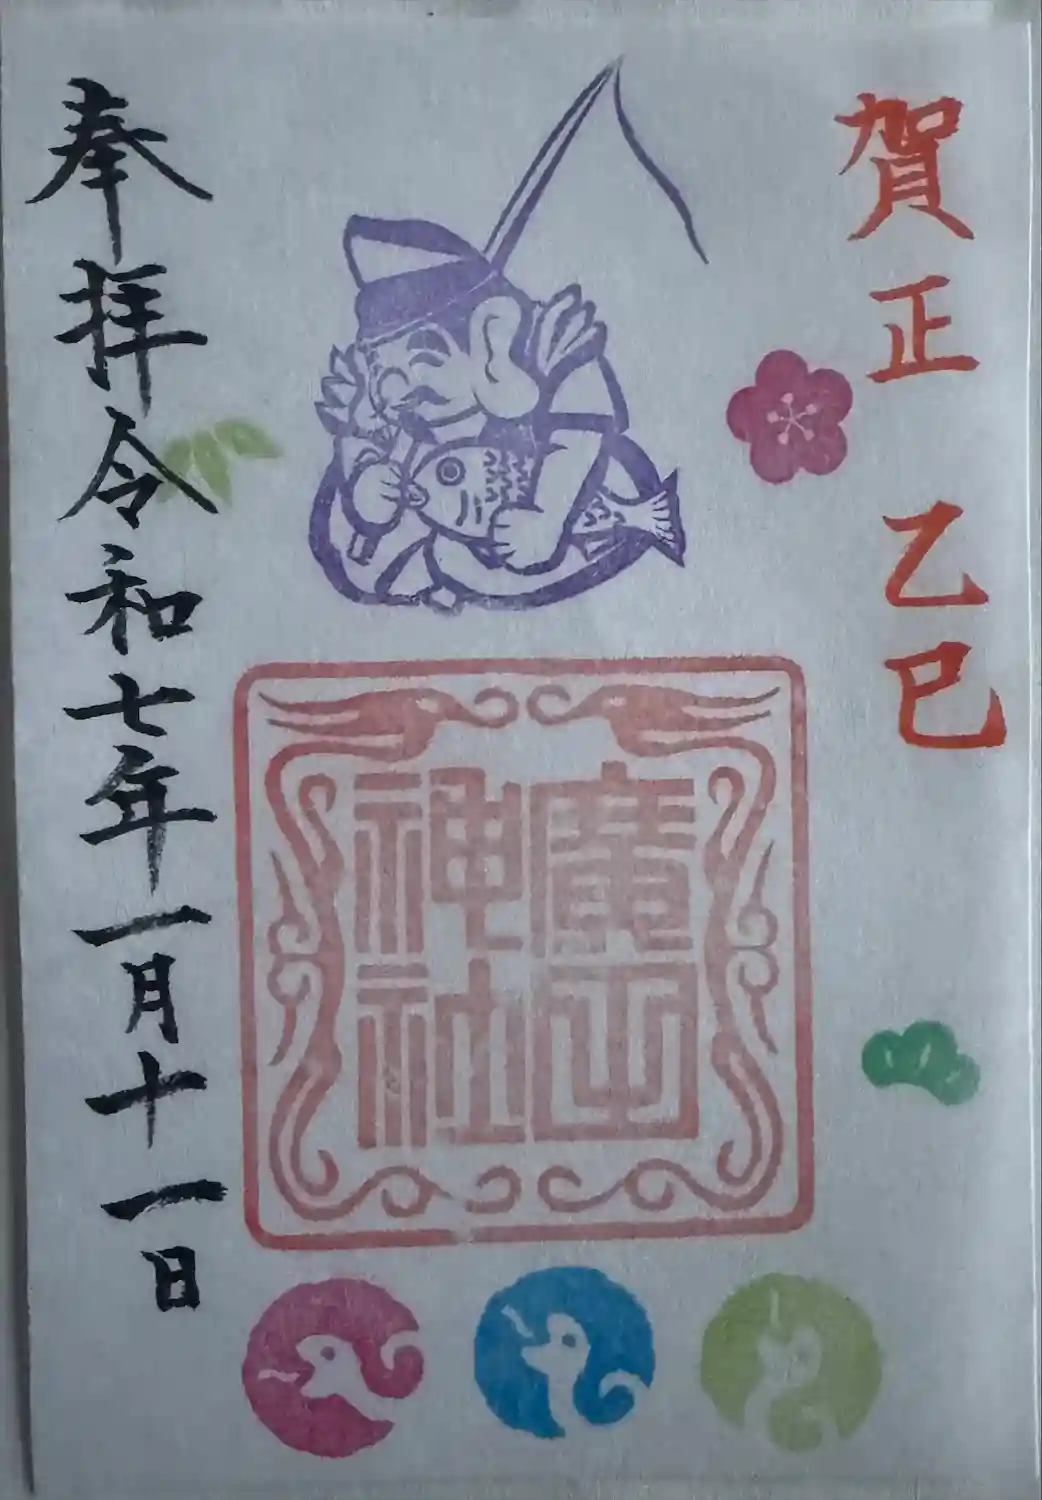 賀正 乙巳
廣田
神社
奉拝令和七年一月十一日